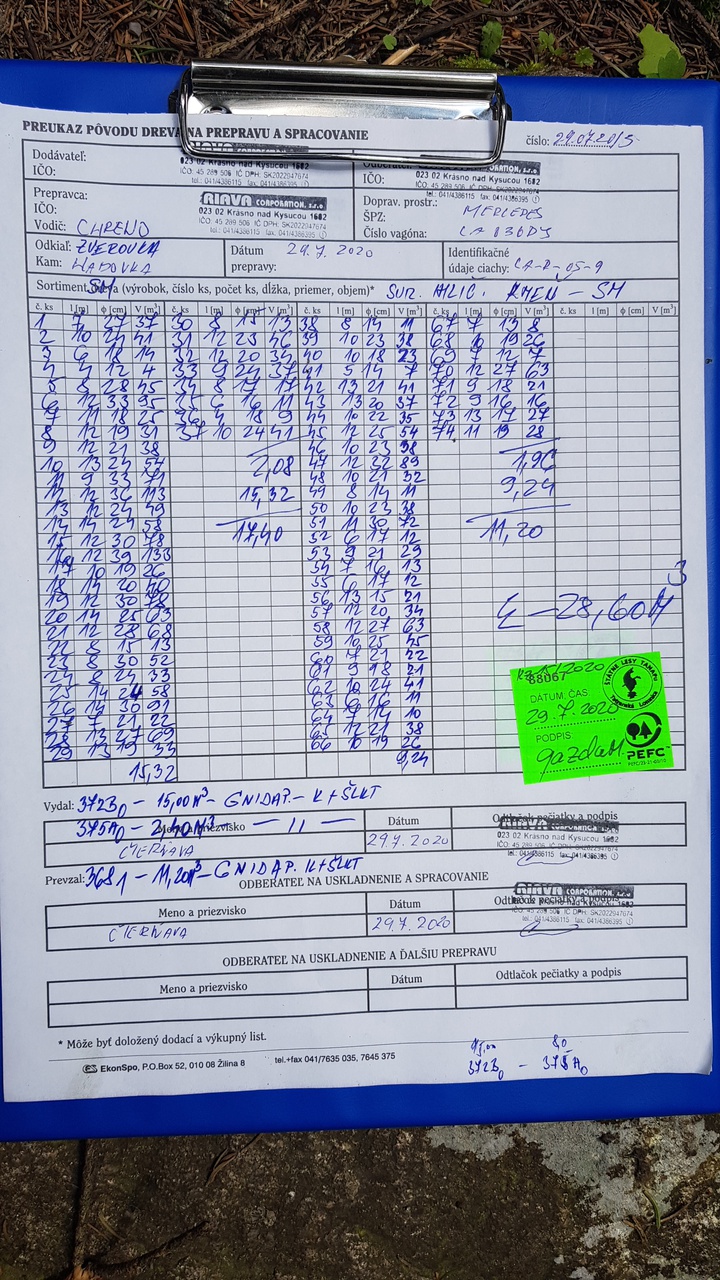 PREUKAZ PÔVODU DREVA NA PREPRAVU A SPRACOVANIE
číslo: 29.07.20/5
Dodávateľ:
IČO:
023 02 Krásno nad Kysucou 1682
IČO: 45 289 506 IČ DPH: SK2022947674
tel.: 041/4386115 fax: 041/4386395
Odberateľ:
IČO:
CORPORATION, s.r.o
023 02 Krásno nad Kysucou 1682
IČO: 45 289 506 IČ DPH: SK2022947674
tel.: 041/4386115 fax: 041/4386395
Prepravca:
IČO:
Vodič: CHRENO
RIAVA CORPORATION, s.r.o
023 02 Krásno nad Kysucou 1682
IČO: 45 289 506 IČ DPH: SK2022947674
tel.: 041/4386115 fax: 041/4386395
Doprav. prostr.:
ŠPZ: MERCEDES
Číslo vagóna: CA 036DS
Odkiaľ: ZVEROVKA
Kam: HABOVKA
Dátum
prepravy: 29.7.2020
Identifikačné
údaje ciachy: CA-R-05-9
Sortiment dreva (výrobok, číslo ks, počet ks, dĺžka, priemer, objem)* SUR. IHLIC. KMEN - SM
SM
č. ks l [m] ϕ [cm] V [m³] č. ks l [m] ϕ [cm] V [m³] č. ks l [m] ϕ [cm] V [m³] č. ks l [m] ϕ [cm] V [m³] č. ks l [m] ϕ [cm] V [m³]
1 7 27 37 30 8 15 13 38 8 14 11 67 7 13 8
2 10 24 41 31 12 23 46 39 10 23 38 68 10 19 26
3 6 18 14 32 12 20 34 40 10 18 23 69 7 12 7
4 4 12 4 33 9 24 37 41 5 14 7 70 12 27 63
5 8 28 45 34 8 17 17 42 13 21 41 71 9 18 21
6 12 33 95 35 6 16 11 43 13 20 37 72 9 16 16
7 11 18 25 36 4 18 9 44 10 22 35 73 13 17 27
8 12 19 31 37 10 24 41 45 12 25 54 74 11 19 28
9 12 21 38 46 10 23 38
10 13 24 54 2,08 47 12 32 89 1,96
11 9 33 71 48 10 21 32
12 12 36 113 15,32 49 8 14 11 9,24
13 12 24 49 50 10 23 38
14 14 24 58 17,40 51 11 30 72 11,20
15 12 30 78 52 6 17 12
16 12 39 133 53 9 21 29
17 10 19 26 54 7 16 13
18 14 20 40 55 6 17 12
19 12 30 78 56 13 15 21
20 14 25 63 57 12 20 34 Σ - 28,60 M³
21 12 28 68 58 12 27 63
22 8 15 13 59 10 25 45
23 8 30 52 60 7 21 22
24 8 24 33 61 9 18 21
25 14 24 58 62 10 24 41
26 14 30 91 63 8 16 11
27 7 21 22 64 7 14 10
28 13 27 69 65 12 21 38
29 13 19 33 66 10 19 26
15,32 9,24
88067
ŠTÁTNE LESY TANAPU
Tatranská Lomnica
DÁTUM, ČAS:
29.7.2020
PODPIS:
gazdaM
PEFC
Vydal: 372B0 - 15,00M³ - GNIDAP. - K+ŠLKT
375A0 - 2,40M³ - 11 -
Meno a priezvisko
Dátum
Odtlačok pečiatky a podpis
ČIERŇAVA
29.7.2020
RIAVA CORPORATION, s.r.o
Prevzal: 3681 - 11,20M³ - GNIDAP. K+ŠLKT
ODBERATEĽ NA USKLADNENIE A SPRACOVANIE
Meno a priezvisko
Dátum
Odtlačok pečiatky a podpis
ČIERŇAVA
29.7.2020
RIAVA CORPORATION, s.r.o
ODBERATEĽ NA USKLADNENIE A ĎALŠIU PREPRAVU
Meno a priezvisko
Dátum
Odtlačok pečiatky a podpis
* Môže byť doložený dodací a výkupný list.
EkonSpo, P.O.Box 52, 010 08 Žilina 8
tel.+fax 041/7635 035, 7645 375
372B0 - 375A0